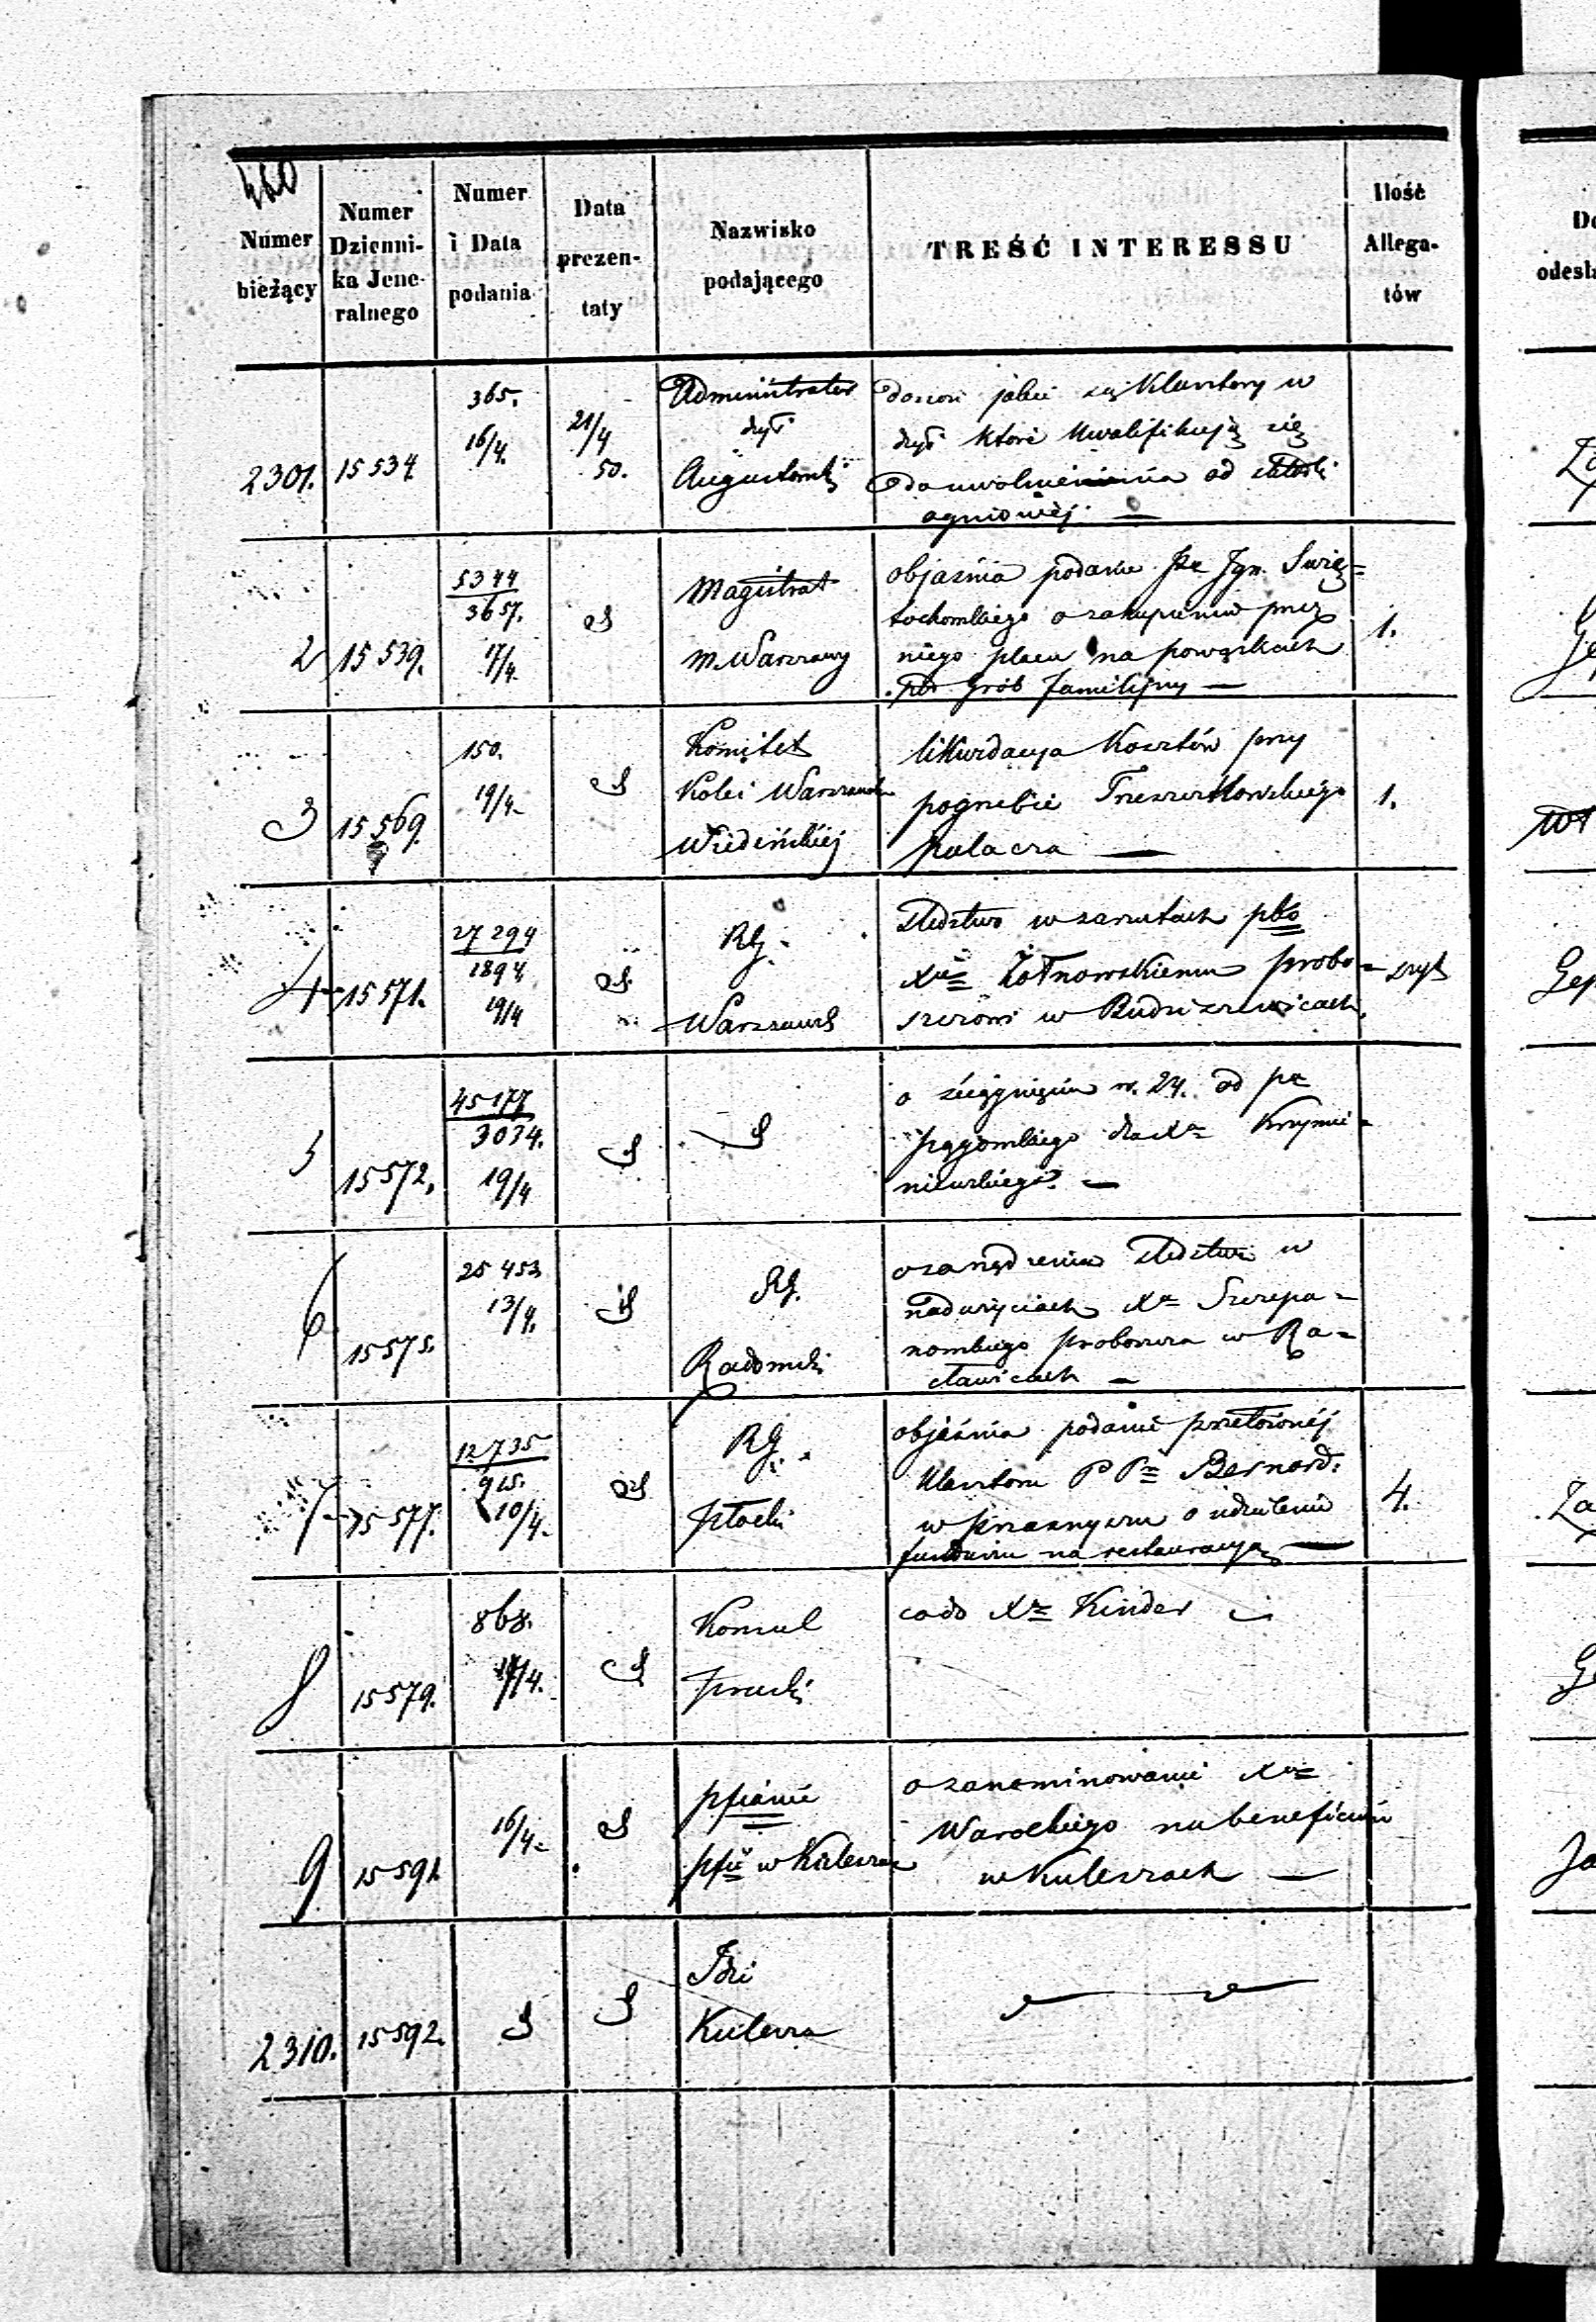 460
Numer
bieżący
Numer
Dzienni-
ka Jene-
ralnego
Numer
i Data
podania
Data
prezen-
taty
Nazwisko
podającego
TREŚĆ INTERESSU
Ilość
Allega-
tów
2301. 15534
365.
16/4.
21/4
50.
Administrator
dyś
Augustowski
donosi jakie są Klasztory w
dyś które kwalifikują się
do uwolnienia od składki
ogniowéj —
2 15539.
5344
3657.
17/4
Magistrat
m. Warszawy
objaśnia podanie Pa Ign. Świę=
tochowskiego o zakupieniu przez
niego placu na powązkach
pod grób familijny —
1.
3 15569.
150.
19/4
Komitet
Kolei Warszawsko
Wiedeńskiéj
likwidacya Kosztów przy
pogrzebie Trzeszczkowskiego
palacza —
1.
4 15571.
27294
1894
19/4
RG.
Warszaws
śledztwo w zarzutach pko
Xu Żółnowskiemu probo=
szczowi w Budziszewicach
szyt
5 15572.
45177
3034.
19/4
o ściągnięciu r. 24. od pa
dla Xa Krzymie=
6 15575.
25453
13/4.
RG.
Radomski
o zarządzenie śledztwa w
nadużyciach Xa Szczepa=
nowskiego proboszcza w Ra=
cławicach —
7 15577.
12735
915.
10/4
RG.
Płocki
objaśnia podanie przełożonéj
klasztoru PPn Bernard:
w Przasnyszu o udzielenie
funduszu na restauracyą —
4.
8 15579.
868.
17/4.
Konsul
Pruski
co do Xa Kinder
9 15591
16/4
pfianie
pfii w Kuleszach
o zanominowanie Xa
Warockiego na beneficium
w Kuleszach —
2310. 15592.
Idzi
Kulesza